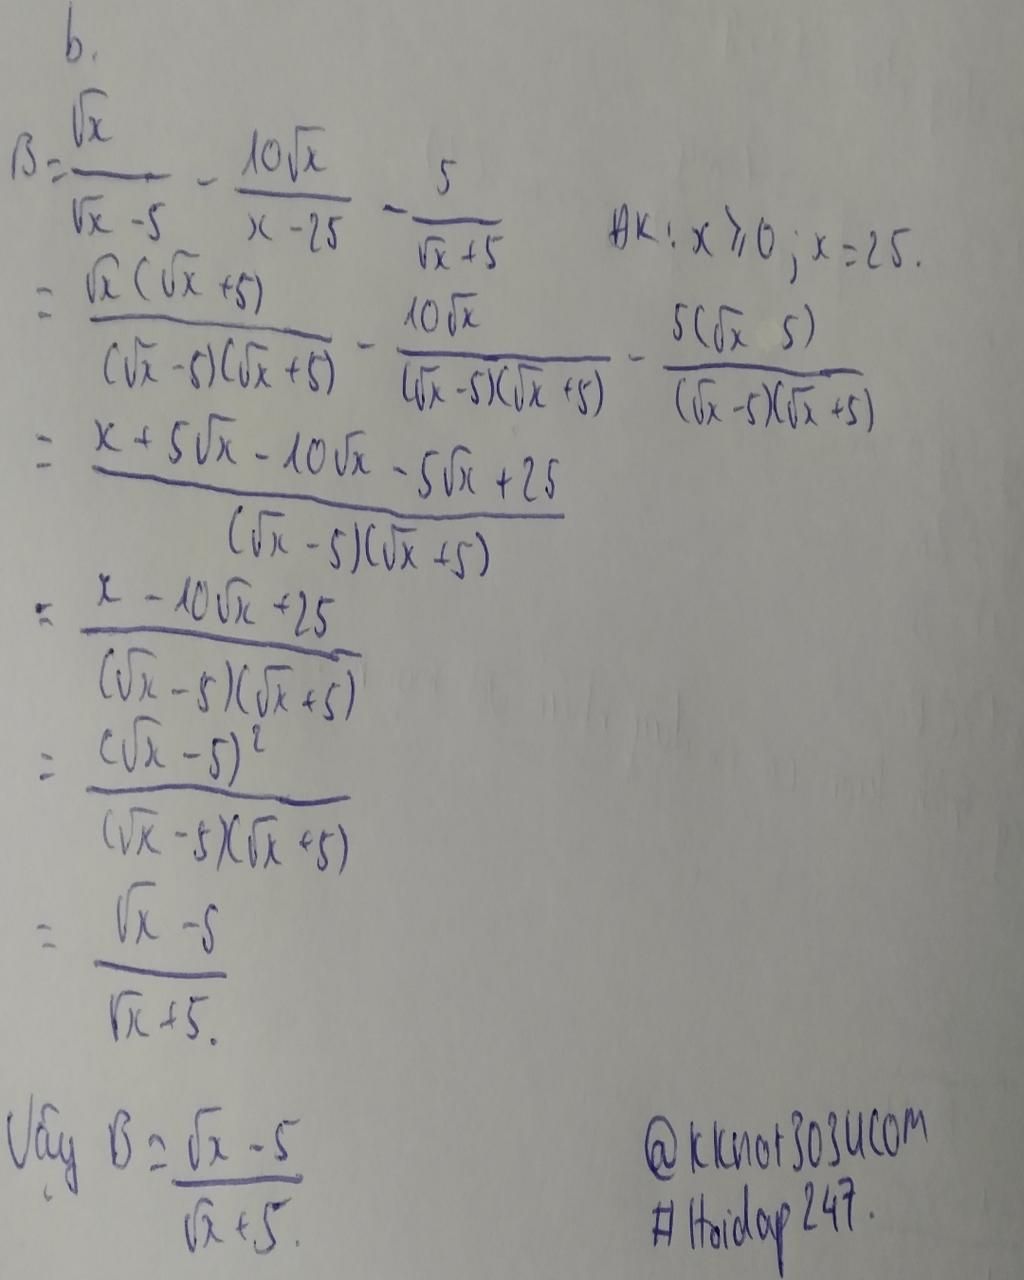 b.
B = √x / (√x - 5) - 10√x / (x - 25) - 5 / (√x + 5) ĐK: x ≥ 0; x = 25.
= √x(√x + 5) / (√x - 5)(√x + 5) - 10√x / (√x - 5)(√x + 5) - 5(√x 5) / (√x - 5)(√x + 5)
= x + 5√x - 10√x - 5√x + 25 / (√x - 5)(√x + 5)
= x - 10√x + 25 / (√x - 5)(√x + 5)
= (√x - 5)² / (√x - 5)(√x + 5)
= √x - 5 / √x + 5.
Vậy B = √x - 5 / √x + 5.
@kknot3034COM
#Hoidap247.